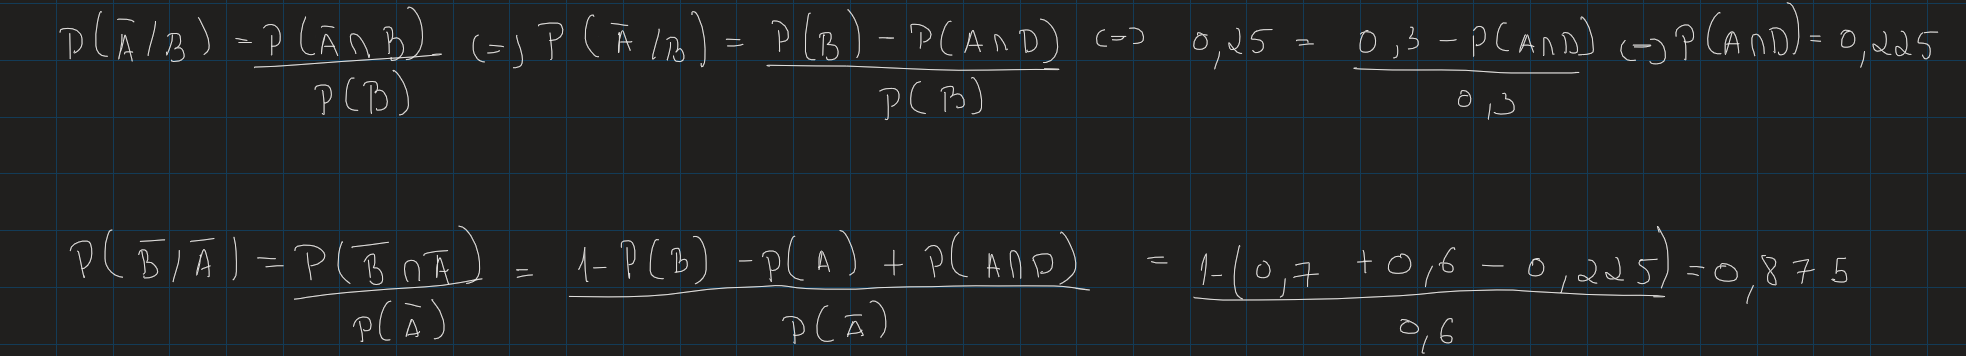 P(Ā/B) = P(Ā∩B)/P(B) (=) P(Ā/B) = P(B) - P(A∩D)/P(B) (=) 0,25 = 0,3 - P(A∩D)/0,3 (=) P(A∩D) = 0,225
P(B̄/Ā) = P(B̄∩Ā)/P(Ā) = 1-P(B) -P(A) + P(A∩D)/P(Ā) = 1-(0,7 +0,6 - 0,225)/0,6 = 0,875